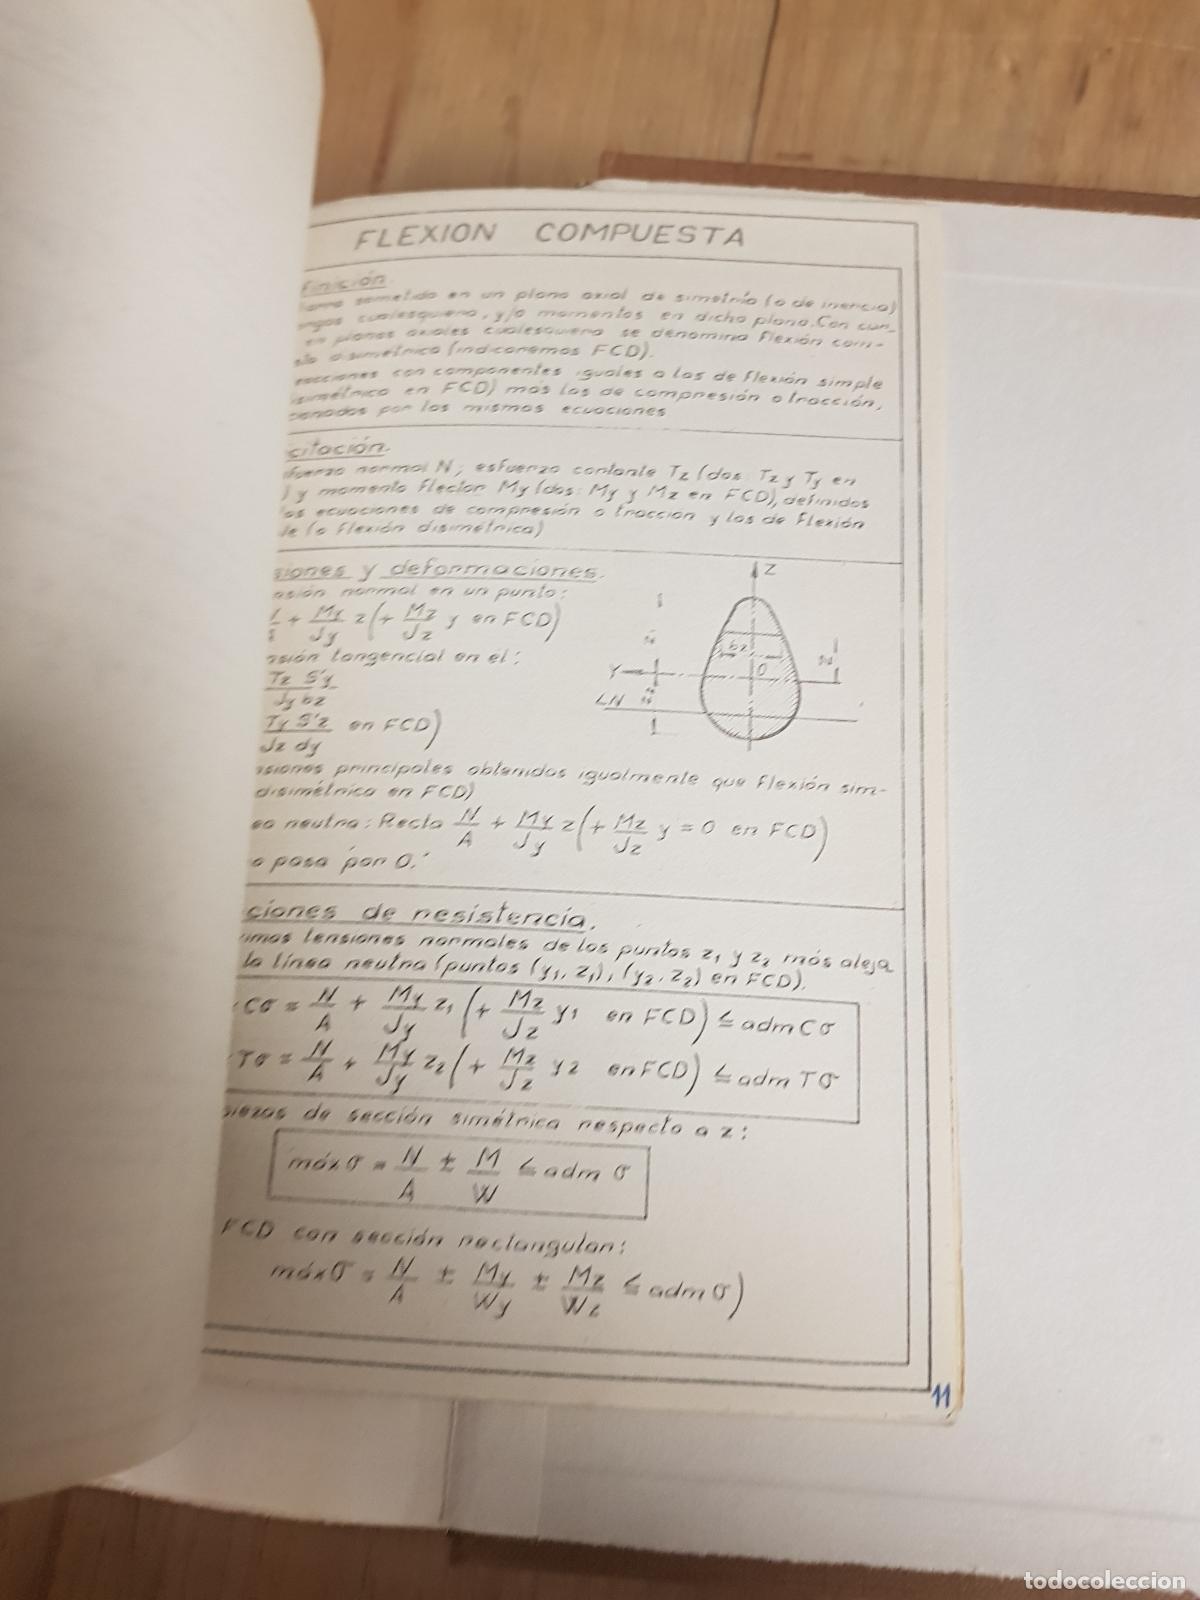 FLEXION COMPUESTA
finición.
sometido en un plano axial de simetría (o de inercia)
rgas cualesquiera, y/o momentos en dicho plano. Con car-
en planos axiales cualesquiera se denomina flexión com-
disimétrica (indicaremos FCD).
acciones con componentes iguales a las de flexión simple
simétrica en FCD) más las de compresión o tracción,
cionados por las mismas ecuaciones
citación.
sfuerzo normal N; esfuerzo cortante Tz (dos: Tz y Ty en
) y momento flector My (dos: My y Mz en FCD), definidos
las ecuaciones de compresión o tracción y los de flexión
le (o flexión disimétrica)
siones y deformaciones.
nsión normal en un punto:
+ My/Jy z (+ Mz/Jz y en FCD)
nsión tangencial en él:
Tz S'y / Jy bz
Ty S'z / Jz dy en FCD)
Z
bz
Y
O
N
LN
nsiones principales obtenidas igualmente que flexión sim-
disimétrica en FCD)
ea neutra: Recta N/A + My/Jy z (+ Mz/Jz y = 0 en FCD)
o pasa por O.
ciones de resistencia.
imas tensiones normales de los puntos z1 y z2 más aleja
la línea neutra (puntos (y1, z1), (y2, z2) en FCD).
Cσ = N/A + My/Jy z1 (+ Mz/Jz y1 en FCD) ≤ adm Cσ
Tσ = N/A + My/Jy z2 (+ Mz/Jz y2 en FCD) ≤ adm Tσ
piezas de sección simétrica respecto a z:
máx σ = N/A ± M/W ≤ adm σ
FCD con sección rectangular:
máx σ = N/A ± My/Wy ± Mz/Wz ≤ adm σ)
11
todocoleccion